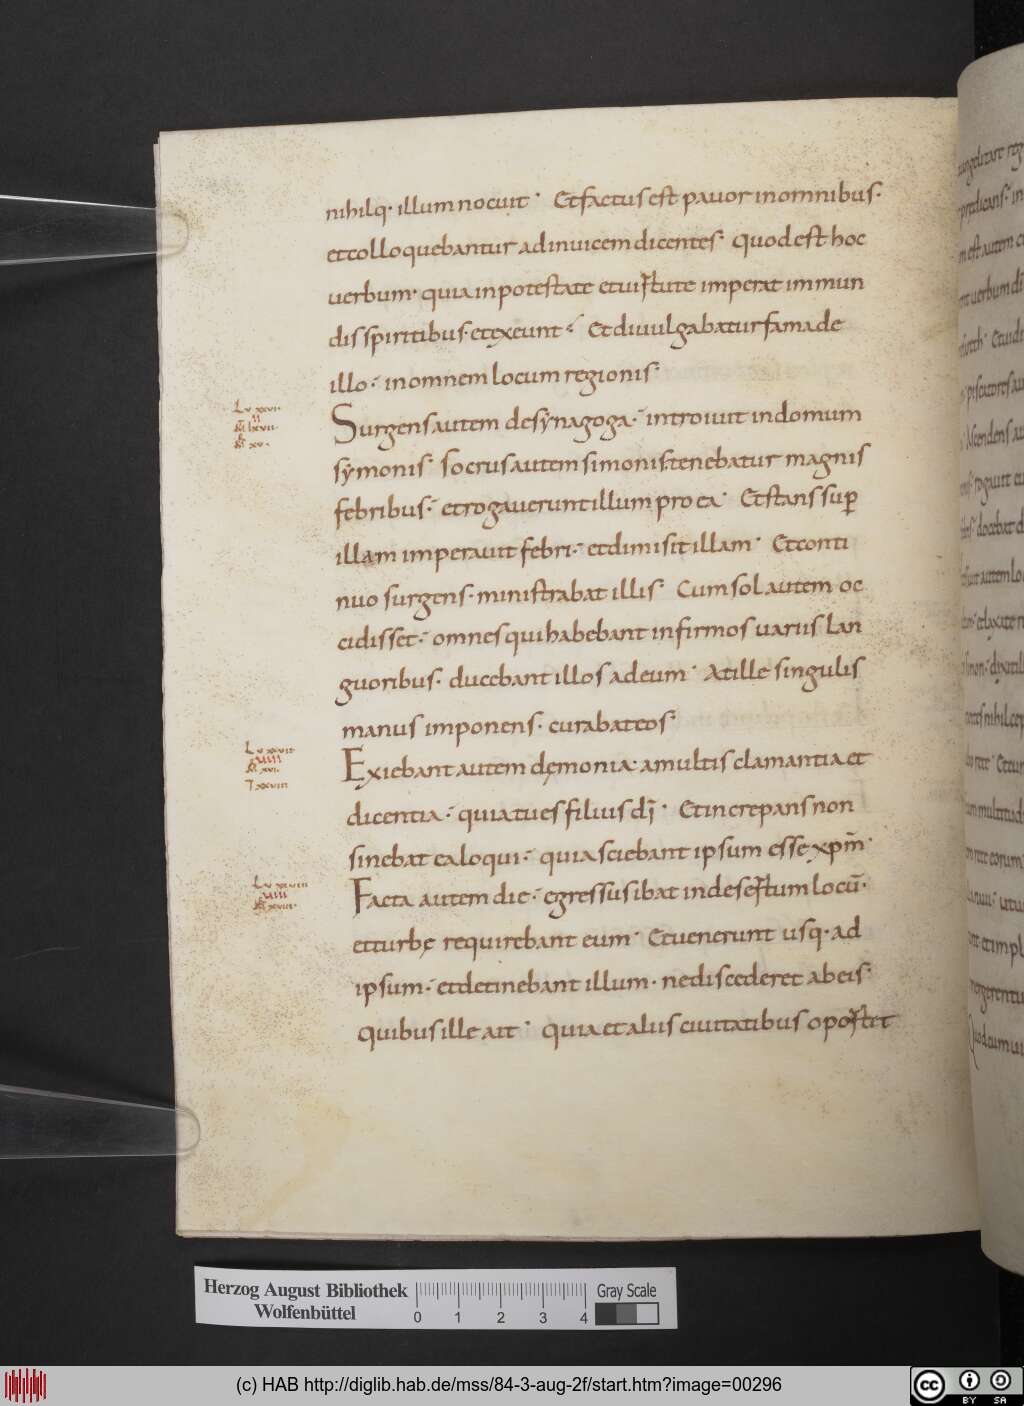 nihilq· illum nocuit· Et factus est pavor in omnibus·
et colloquebantur ad inuicem dicentes· quod est hoc
uerbum· quia in potestate et uirtute imperat immun
dis spiritibus· et exeunt· Et diuulgabatur fama de
illo· in omnem locum regionis·
Lu xxvi·
Surgens autem de synagoga· introiuit in domum
symonis· socrus autem simonis· tenebatur magnis
febribus· et rogauerunt illum pro ea· Et stans sup
illam imperauit febri· et dimisit illam· Et conti
nuo surgens· ministrabat illis· Cum sol autem oc
cidisset· omnes qui habebant infirmos uariis lan
guoribus· ducebant illos ad eum· At ille singulis
manus imponens· curabat eos·
Lu xxvii
Exiebant autem demonia· a multis clamantia et
dicentia· quia tu es filius di· Et increpans non
sinebat ea loqui· quia sciebant ipsum esse xpm·
Lu xxviii
Facta autem die· egressus ibat in desertum locū·
et turbę requirebant eum· Et uenerunt usq· ad
ipsum· et detinebant illum· ne discederet ab eis·
Quibus ille ait· quia et aliis ciuitatibus oportet
Herzog August Bibliothek
Wolfenbüttel
0 1 2 3 4
Gray Scale
(c) HAB http://diglib.hab.de/mss/84-3-aug-2f/start.htm?image=00296
HAB
cc BY SA